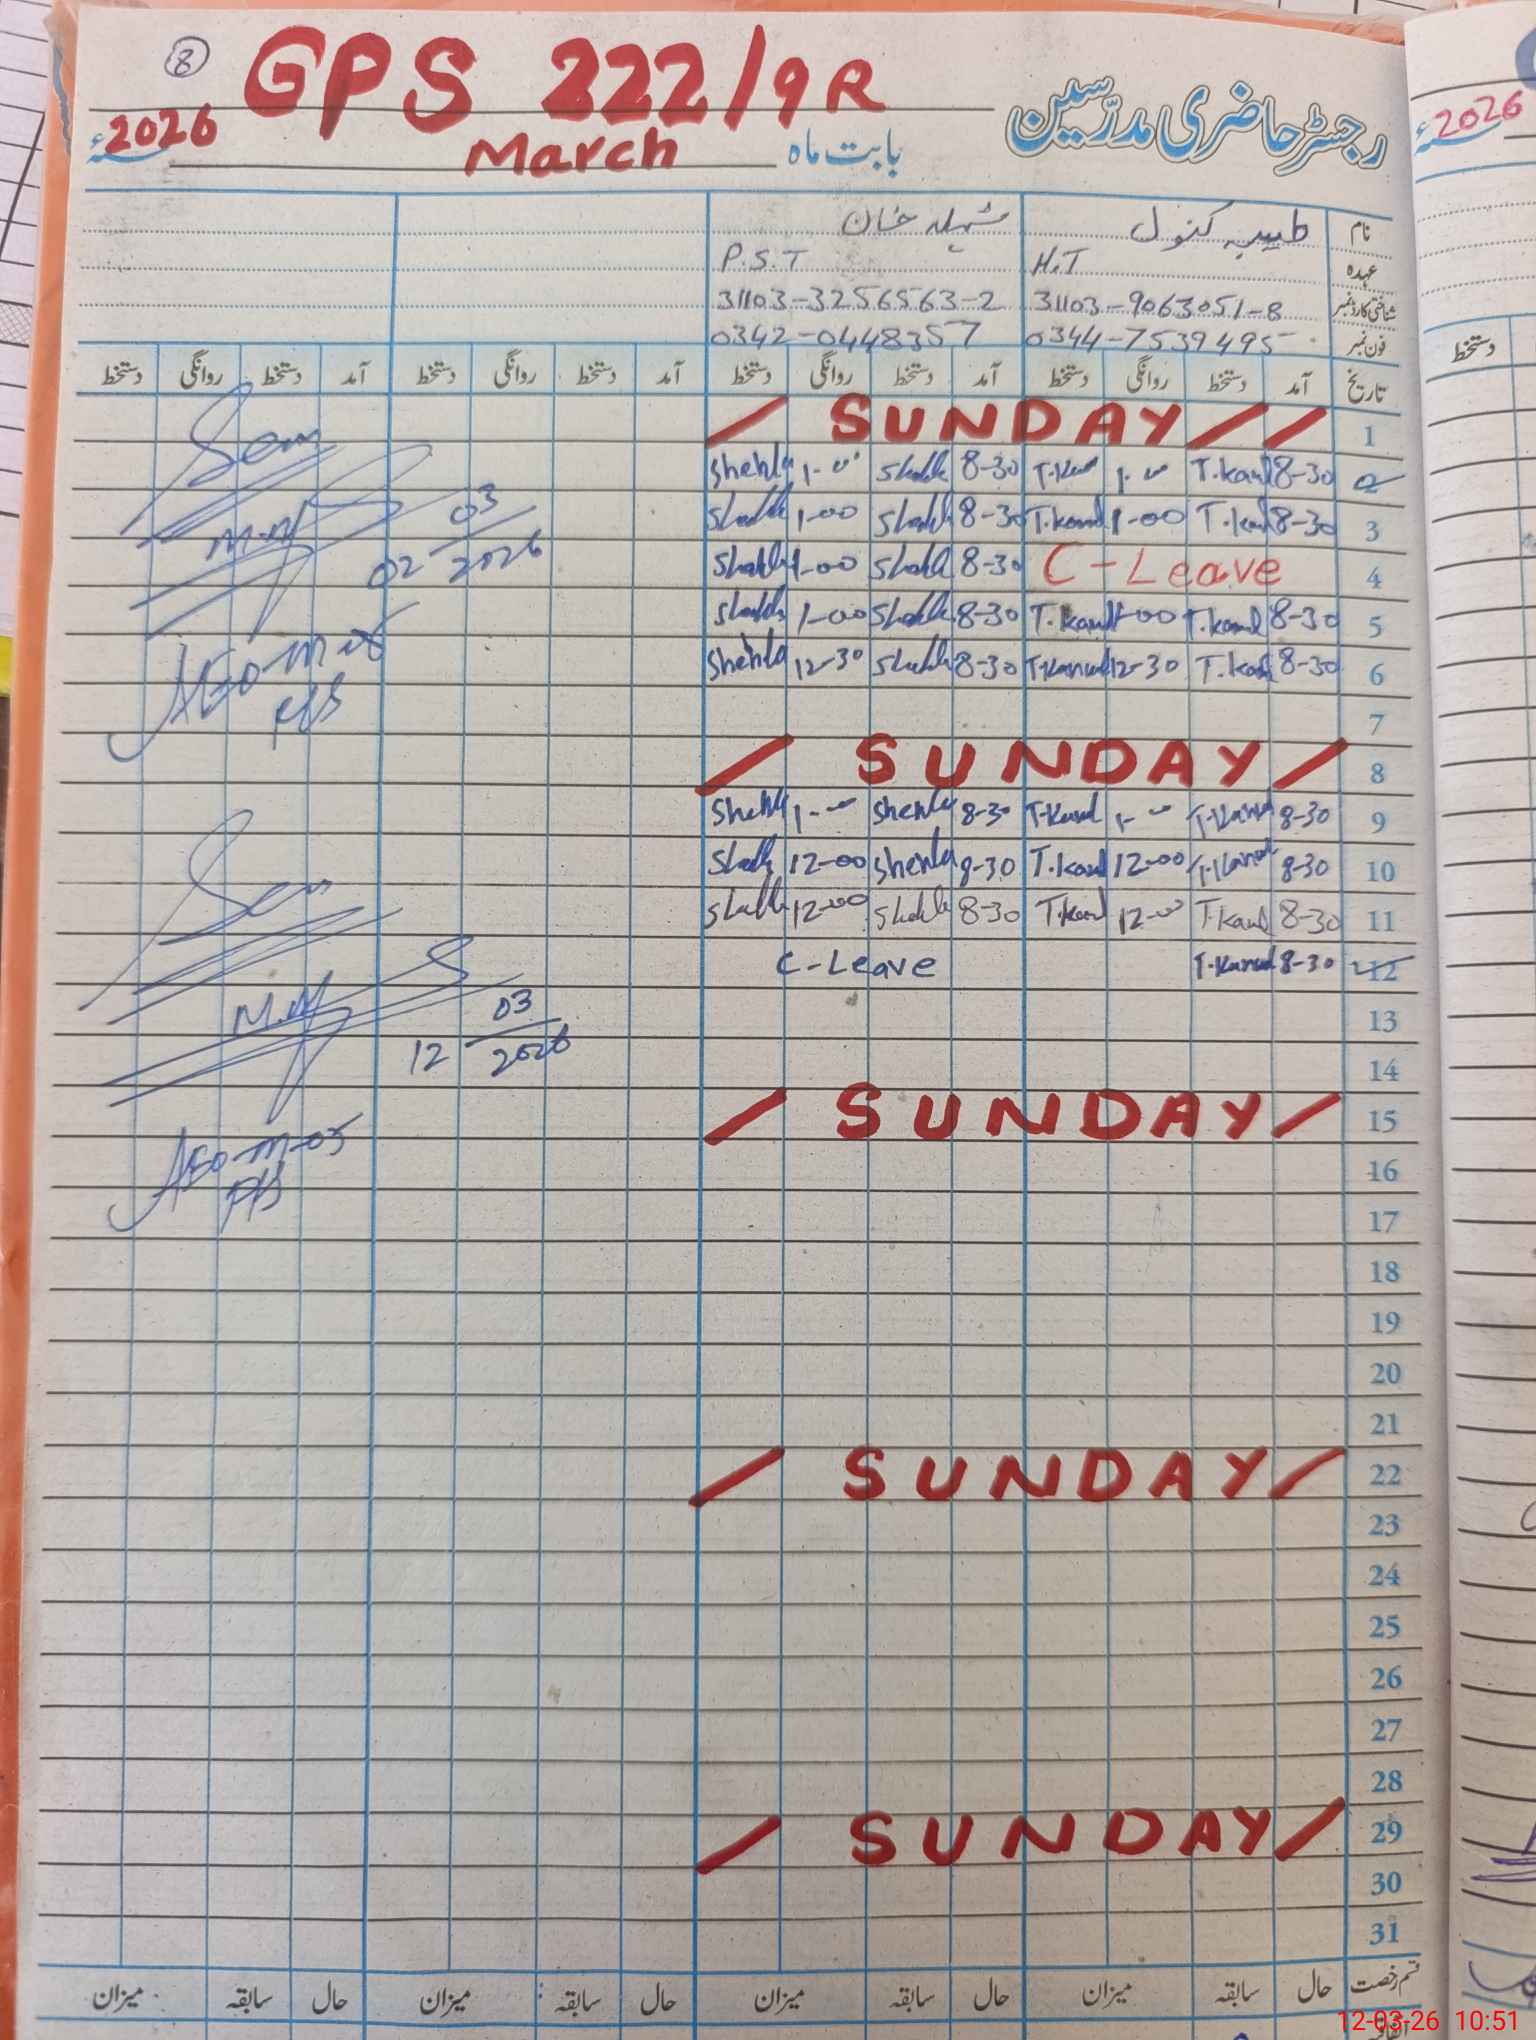 8
GPS 222/9R
رجسٹر حاضری مدرسین
2026ء
March بابت ماہ
2026ء
نام طیبہ کنول شہلہ خان
عہدہ H.T P.S.T
شناختی کارڈ نمبر 31103-9063051-8 31103-3256563-2
فون نمبر 0344-7539495 0342-0448357
تاریخ آمد دستخط روانگی دستخط آمد دستخط روانگی دستخط آمد دستخط روانگی دستخط آمد دستخط روانگی دستخط
دستخط
/ SUNDAY // 1
Shehla 1-00 8-30 T.Kanwal 1-00 T.Kanwal 8-30 2
1-00 8-30 T.Kanwal 1-00 T.Kanwal 8-30 3
1-00 8-30 C-Leave 4
1-00 8-30 T.Kanwal 1-00 T.Kanwal 8-30 5
Shehla 12-30 8-30 T.Kanwal 12-30 T.Kanwal 8-30 6
7
/ SUNDAY / 8
Shehla 1-00 Shehla 8-30 T.Kanwal 1-00 T.Kanwal 8-30 9
12-00 Shehla 8-30 T.Kanwal 12-00 T.Kanwal 8-30 10
12-00 8-30 T.Kanwal 12-00 T.Kanwal 8-30 11
C-Leave T.Kanwal 8-30 12
13
14
/ SUNDAY / 15
16
17
18
19
20
21
/ SUNDAY / 22
23
24
25
26
27
28
/ SUNDAY / 29
30
31
02 03/2026
AEO-M-05
12 03/2026
AEO-M-05
قسم رخصت حال سابقہ میزان حال سابقہ میزان حال سابقہ میزان حال سابقہ میزان
12-03-26 10:51